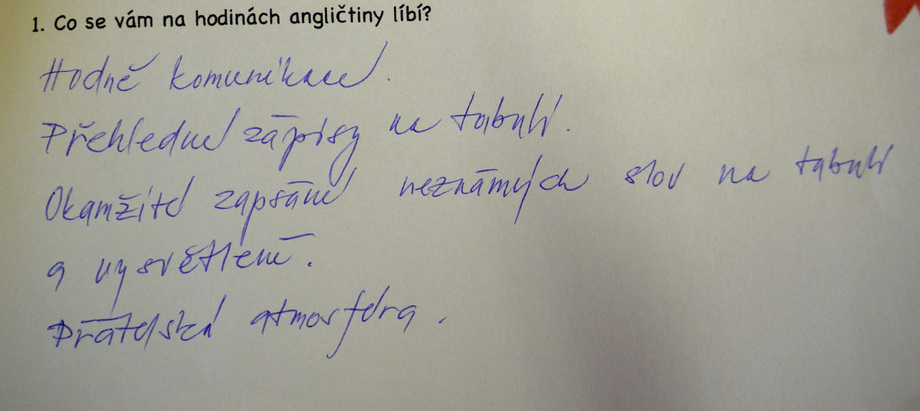 1. Co se vám na hodinách angličtiny líbí?
Hodně komunikace.
Přehledné zápisy na tabuli.
Okamžité zapsání neznámých slov na tabuli
a vysvětlení.
Přátelská atmosféra.